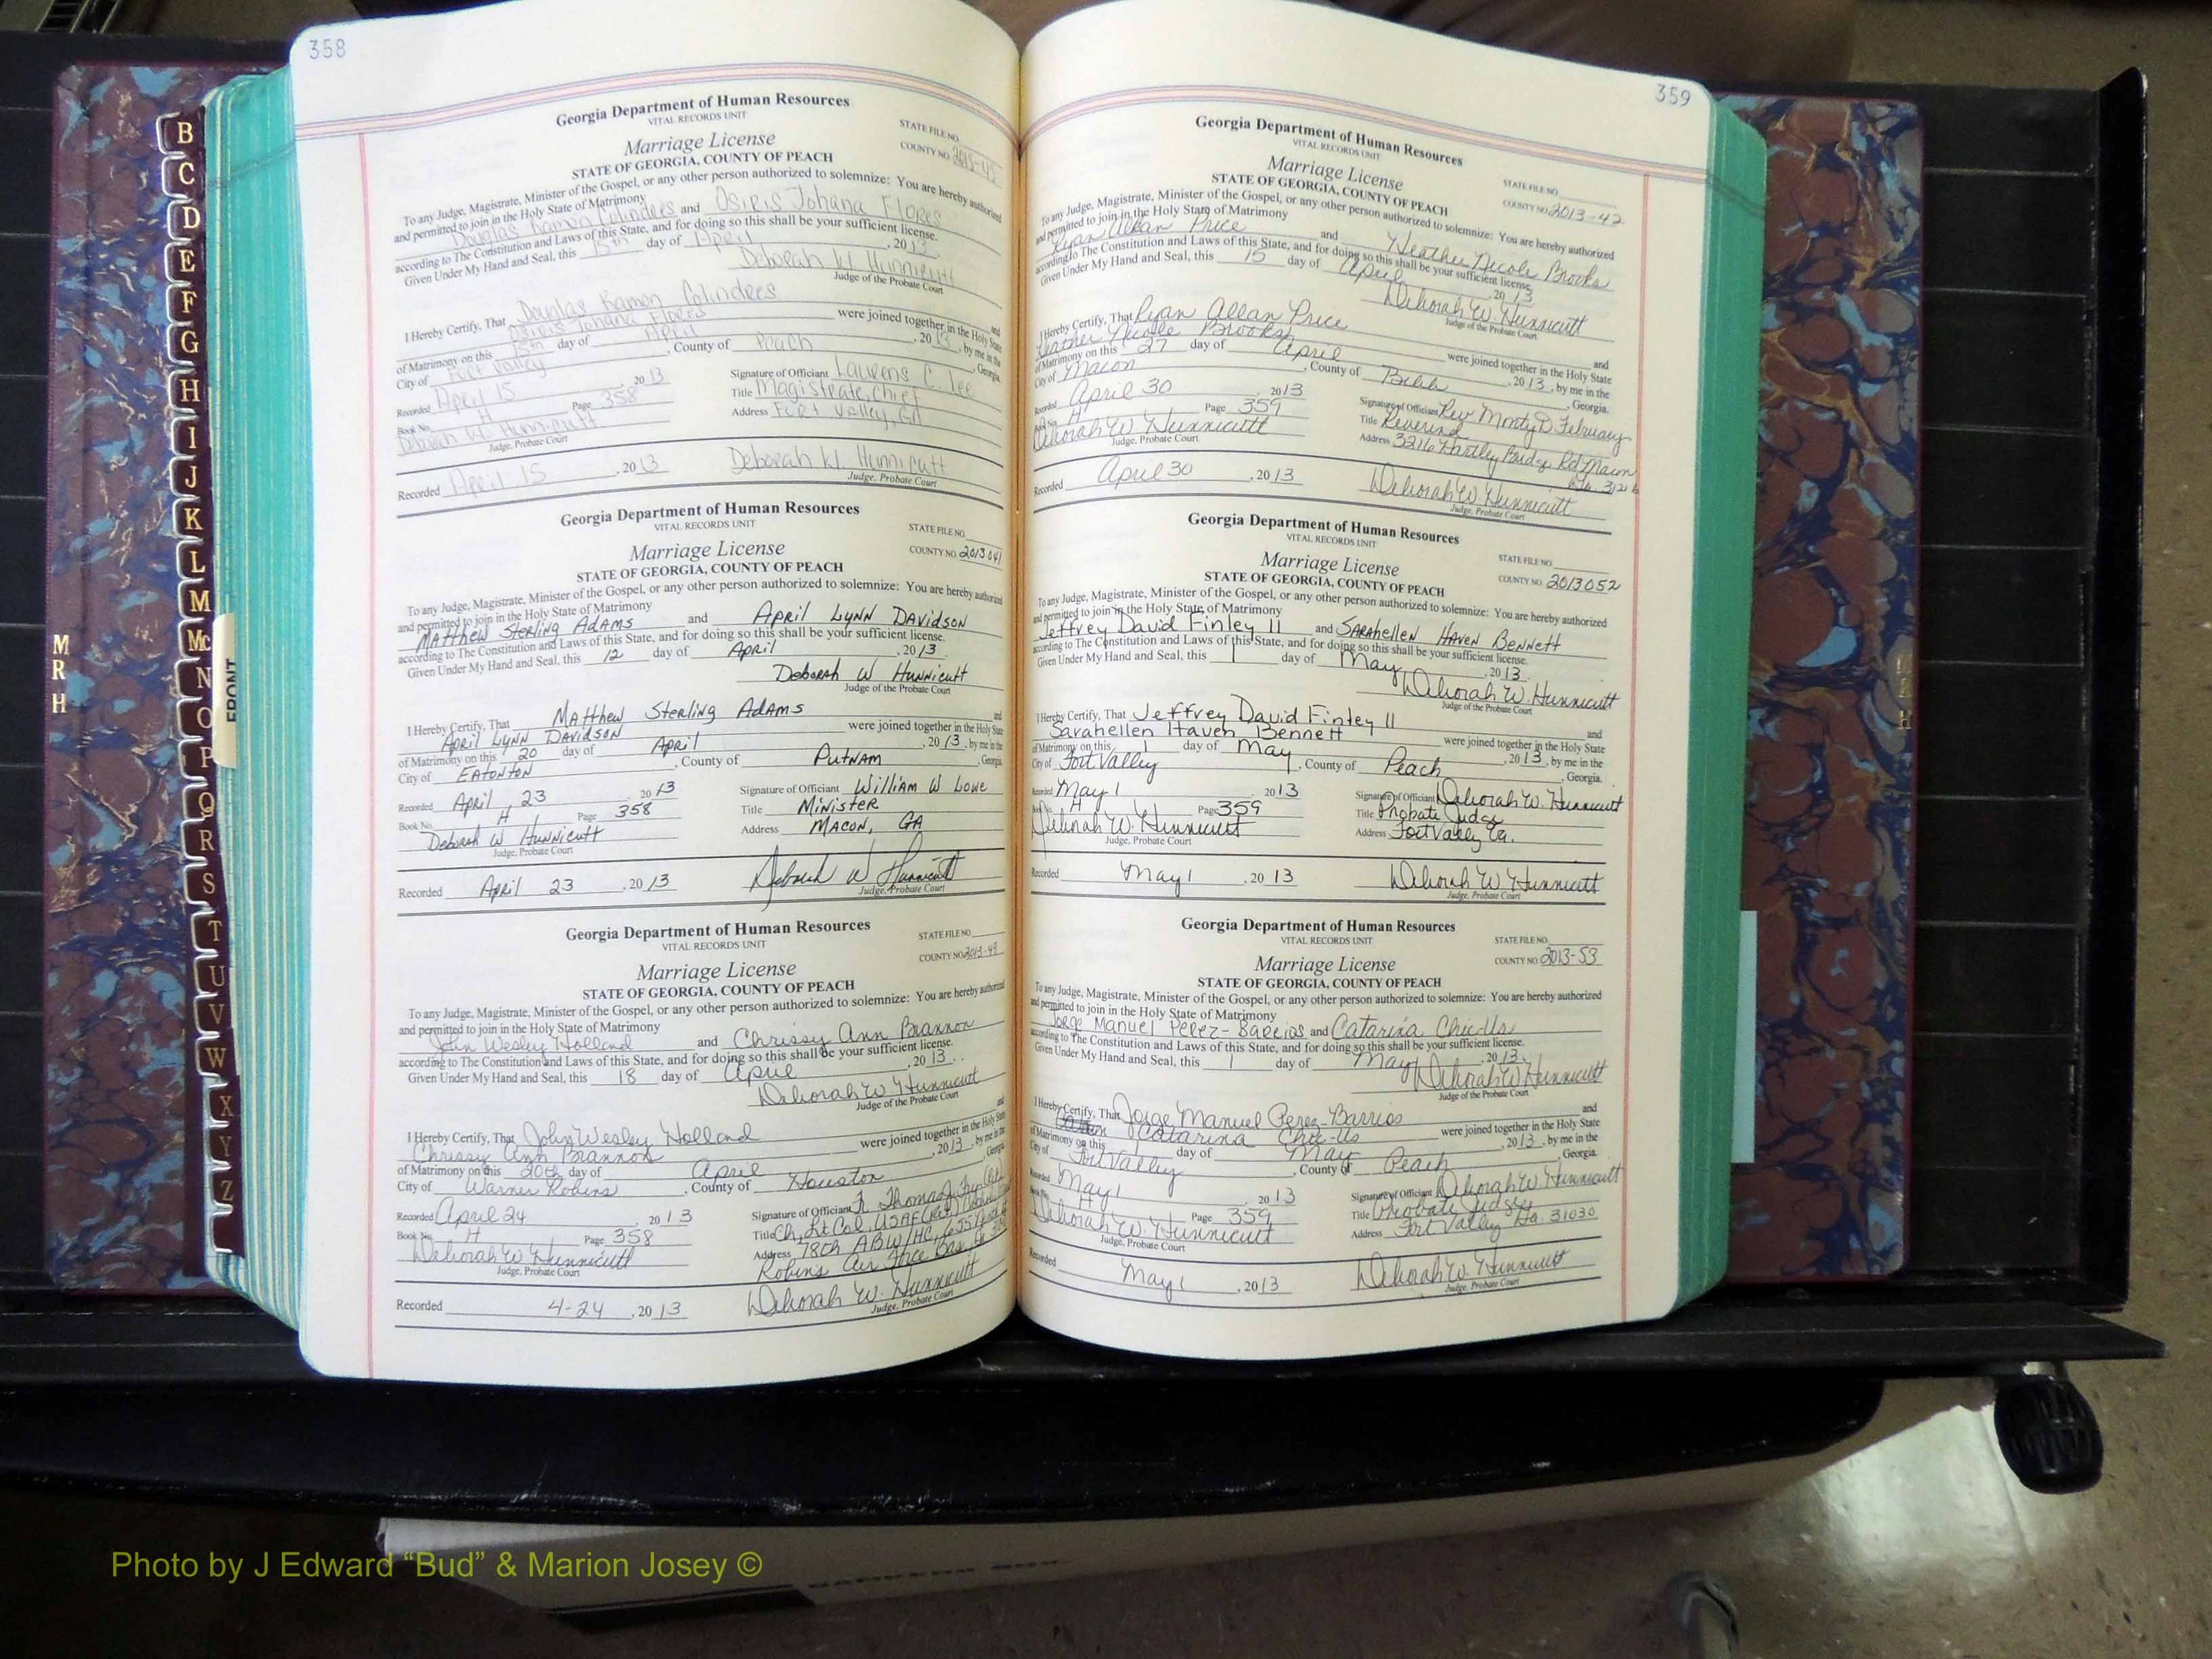 358
Georgia Department of Human Resources
VITAL RECORDS UNIT
STATE FILE NO.
Marriage License
COUNTY NO.
STATE OF GEORGIA, COUNTY OF PEACH
To any Judge, Magistrate, Minister of the Gospel, or any other person authorized to solemnize: You are hereby authorized
and permitted to join in the Holy State of Matrimony
Douglas Ramon Colindres and Osiris Johana Flores
according to The Constitution and Laws of this State, and for doing so this shall be your sufficient license.
Given Under My Hand and Seal, this 15th day of April, 2013.
Deborah W. Hunnicutt
Judge of the Probate Court
I Hereby Certify, That Douglas Ramon Colindres and
Osiris Johana Flores were joined together in the Holy State
of Matrimony on this 15th day of April, 2013, by me in the
City of Fort Valley, County of Peach, Georgia.
Recorded April 15 2013 Signature of Officiant Laurens C. Lee
Book No. H Page 358 Title Magistrate, Chief
Deborah W. Hunnicutt Address Fort Valley, GA
Judge, Probate Court
Recorded April 15, 2013 Deborah W. Hunnicutt
Judge, Probate Court
Georgia Department of Human Resources
VITAL RECORDS UNIT
STATE FILE NO.
Marriage License
COUNTY NO. 2013041
STATE OF GEORGIA, COUNTY OF PEACH
To any Judge, Magistrate, Minister of the Gospel, or any other person authorized to solemnize: You are hereby authorized
and permitted to join in the Holy State of Matrimony
Matthew Sterling Adams and April Lynn Davidson
according to The Constitution and Laws of this State, and for doing so this shall be your sufficient license.
Given Under My Hand and Seal, this 12 day of April, 2013.
Deborah W Hunnicutt
Judge of the Probate Court
I Hereby Certify, That Matthew Sterling Adams and
April Lynn Davidson were joined together in the Holy State
of Matrimony on this 20 day of April, 2013, by me in the
City of Eatonton, County of Putnam, Georgia.
Recorded April 23 2013 Signature of Officiant William W Lowe
Book No. H Page 358 Title Minister
Deborah W Hunnicutt Address Macon, GA
Judge, Probate Court
Recorded April 23, 2013 Deborah W Hunnicutt
Judge, Probate Court
Georgia Department of Human Resources
VITAL RECORDS UNIT
STATE FILE NO.
Marriage License
COUNTY NO. 2013-49
STATE OF GEORGIA, COUNTY OF PEACH
To any Judge, Magistrate, Minister of the Gospel, or any other person authorized to solemnize: You are hereby authorized
and permitted to join in the Holy State of Matrimony
John Wesley Holland and Chrissy Ann Brannon
according to The Constitution and Laws of this State, and for doing so this shall be your sufficient license.
Given Under My Hand and Seal, this 18 day of April, 2013.
Deborah W. Hunnicutt
Judge of the Probate Court
I Hereby Certify, That John Wesley Holland and
Chrissy Ann Brannon were joined together in the Holy State
of Matrimony on this 20th day of April, 2013, by me in the
City of Warner Robins, County of Houston Georgia
Recorded April 24 2013 Signature of Officiant Thomas
Book No. H Page 358 Title Ch, Lt Col, USAF
Deborah W. Hunnicutt Address 78th ABW/HC
Judge, Probate Court Robins Air Force Base
Recorded 4-24, 2013 Deborah W. Hunnicutt
Judge, Probate Court
359
Georgia Department of Human Resources
VITAL RECORDS UNIT
STATE FILE NO.
Marriage License
COUNTY NO. 2013-42
STATE OF GEORGIA, COUNTY OF PEACH
To any Judge, Magistrate, Minister of the Gospel, or any other person authorized to solemnize: You are hereby authorized
and permitted to join in the Holy State of Matrimony
Ryan Allan Price and Heather Nicole Brooks
according to The Constitution and Laws of this State, and for doing so this shall be your sufficient license.
Given Under My Hand and Seal, this 15 day of April, 2013
Deborah W. Hunnicutt
Judge of the Probate Court
I Hereby Certify, That Ryan Allan Price and
Heather Nicole Brooks were joined together in the Holy State
of Matrimony on this 27 day of April, 2013, by me in the
City of Macon, County of Bibb, Georgia.
Recorded April 30 2013 Signature of Officiant Rev Monty D February
Book No. H Page 359 Title Reverend
Deborah W Hunnicutt Address Hartley Bridge Rd Macon
Judge, Probate Court
Recorded April 30, 2013 Deborah W. Hunnicutt
Judge, Probate Court
Georgia Department of Human Resources
VITAL RECORDS UNIT
STATE FILE NO.
Marriage License
COUNTY NO. 2013052
STATE OF GEORGIA, COUNTY OF PEACH
To any Judge, Magistrate, Minister of the Gospel, or any other person authorized to solemnize: You are hereby authorized
and permitted to join in the Holy State of Matrimony
Jeffrey David Finley II and Sarahellen Haven Bennett
according to The Constitution and Laws of this State, and for doing so this shall be your sufficient license.
Given Under My Hand and Seal, this 1 day of May, 2013.
Deborah W. Hunnicutt
Judge of the Probate Court
I Hereby Certify, That Jeffrey David Finley II and
Sarahellen Haven Bennett were joined together in the Holy State
of Matrimony on this 1 day of May, 2013, by me in the
City of Fort Valley, County of Peach, Georgia.
Recorded May 1 2013 Signature of Officiant Deborah W. Hunnicutt
Book No. H Page 359 Title Probate Judge
Deborah W. Hunnicutt Address Fort Valley Ga.
Judge, Probate Court
Recorded May 1, 2013 Deborah W Hunnicutt
Judge, Probate Court
Georgia Department of Human Resources
VITAL RECORDS UNIT
STATE FILE NO.
Marriage License
COUNTY NO. 2013-53
STATE OF GEORGIA, COUNTY OF PEACH
To any Judge, Magistrate, Minister of the Gospel, or any other person authorized to solemnize: You are hereby authorized
and permitted to join in the Holy State of Matrimony
Jorge Manuel Perez-Barrios and Catarina Chic-Us
according to The Constitution and Laws of this State, and for doing so this shall be your sufficient license.
Given Under My Hand and Seal, this 1 day of May, 2013.
Deborah W Hunnicutt
Judge of the Probate Court
I Hereby Certify, That Jorge Manuel Perez-Barrios and
Catarina Chic-Us were joined together in the Holy State
of Matrimony on this 1 day of May, 2013, by me in the
City of Fort Valley, County of Peach, Georgia.
Recorded May 1 2013 Signature of Officiant Deborah W Hunnicutt
Book No. Page 359 Title Probate Judge
Deborah W. Hunnicutt Address Fort Valley Ga. 31030
Judge, Probate Court
Recorded May 1, 2013 Deborah W. Hunnicutt
Judge, Probate Court
B
C
D
E
F
G
H
I
J
K
L
M
Mc
N
O
P
Q
R
S
T
U
V
W
X
Y
Z
FRONT
M
R
H
Photo by J Edward “Bud” & Marion Josey ©